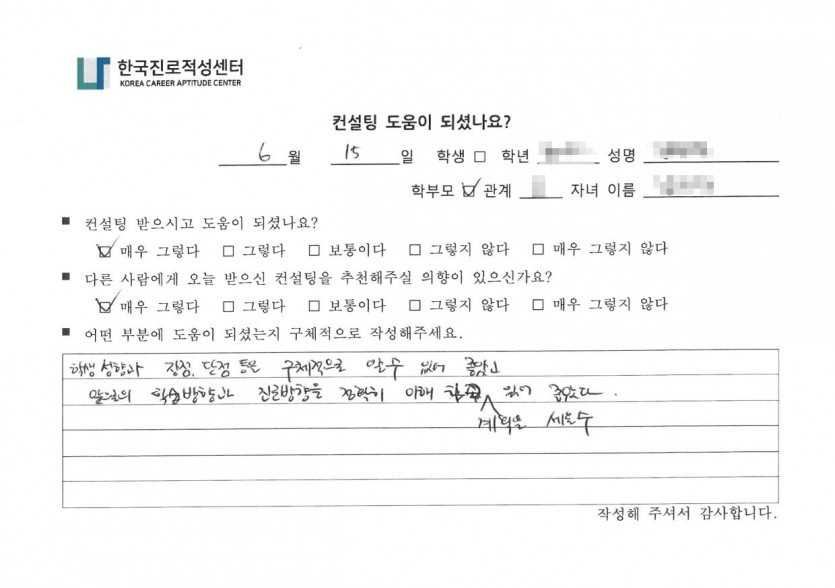 한국진로적성센터
KOREA CAREER APTITUDE CENTER
컨설팅 도움이 되셨나요?
6 월 15 일 학생 □ 학년 성명
학부모 ☑ 관계 자녀 이름
■ 컨설팅 받으시고 도움이 되셨나요?
☑ 매우 그렇다 □ 그렇다 □ 보통이다 □ 그렇지 않다 □ 매우 그렇지 않다
■ 다른 사람에게 오늘 받으신 컨설팅을 추천해주실 의향이 있으신가요?
☑ 매우 그렇다 □ 그렇다 □ 보통이다 □ 그렇지 않다 □ 매우 그렇지 않다
■ 어떤 부분에 도움이 되셨는지 구체적으로 작성해주세요.
학생 성향과 장점, 단점 등은 구체적으로 알 수 있어 좋았고
앞으로의 학습방향과 진로방향을 정확히 이해 있어 좋았다.
계획을 세울수
작성해 주셔서 감사합니다.